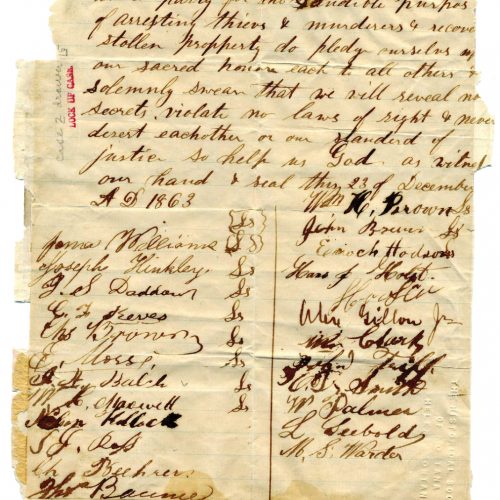 in a party for the laudible purpos
of arresting thievs & murderers & recover
stollen property do pledge ourselves u
our sacred honor each to all others &
solemnly swear that we will reveal no
secrets, violate no laws of right & never
desert eachother or our standerd of
justice so help us God as witnes
our hand & seal this 23 of December
A D 1863
case 2 drawer 5
LOCK UP CASE
James Williams Ls
Joseph Hinkley Ls
J. S. Daddow Ls
C. F. Reeves Ls
Chs Brown Ls
E. Morse Ls
Balch Ls
W. Maxwell Ls
Nelson Kellock
S. J. Ross
Ch Beehrer
Thos Baume
Wm H. Brown Ls
John Brown Ls
Enoch Hodson
Hans J. Holst
Alex Gillon Jr
Wm Clark
John Triff
Smith
W. Palmer
L Seebold
M. S. Warder